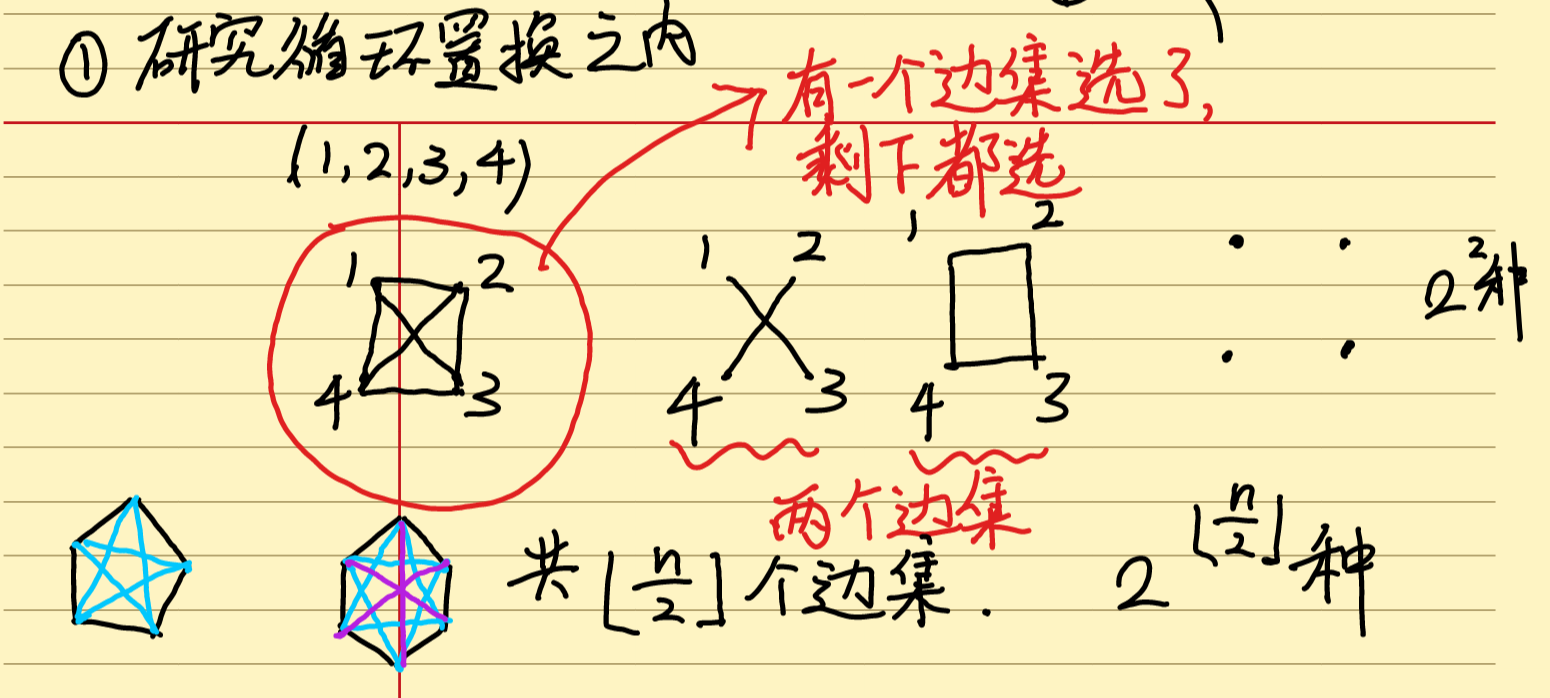 ① 研究循环置换之内
有一个边集选了,
剩下都选
(1,2,3,4)
1 2
4 3
1 2
4 3
1 2
4 3
2²种
两个边集
共⌊n/2⌋个边集. 2^⌊n/2⌋种